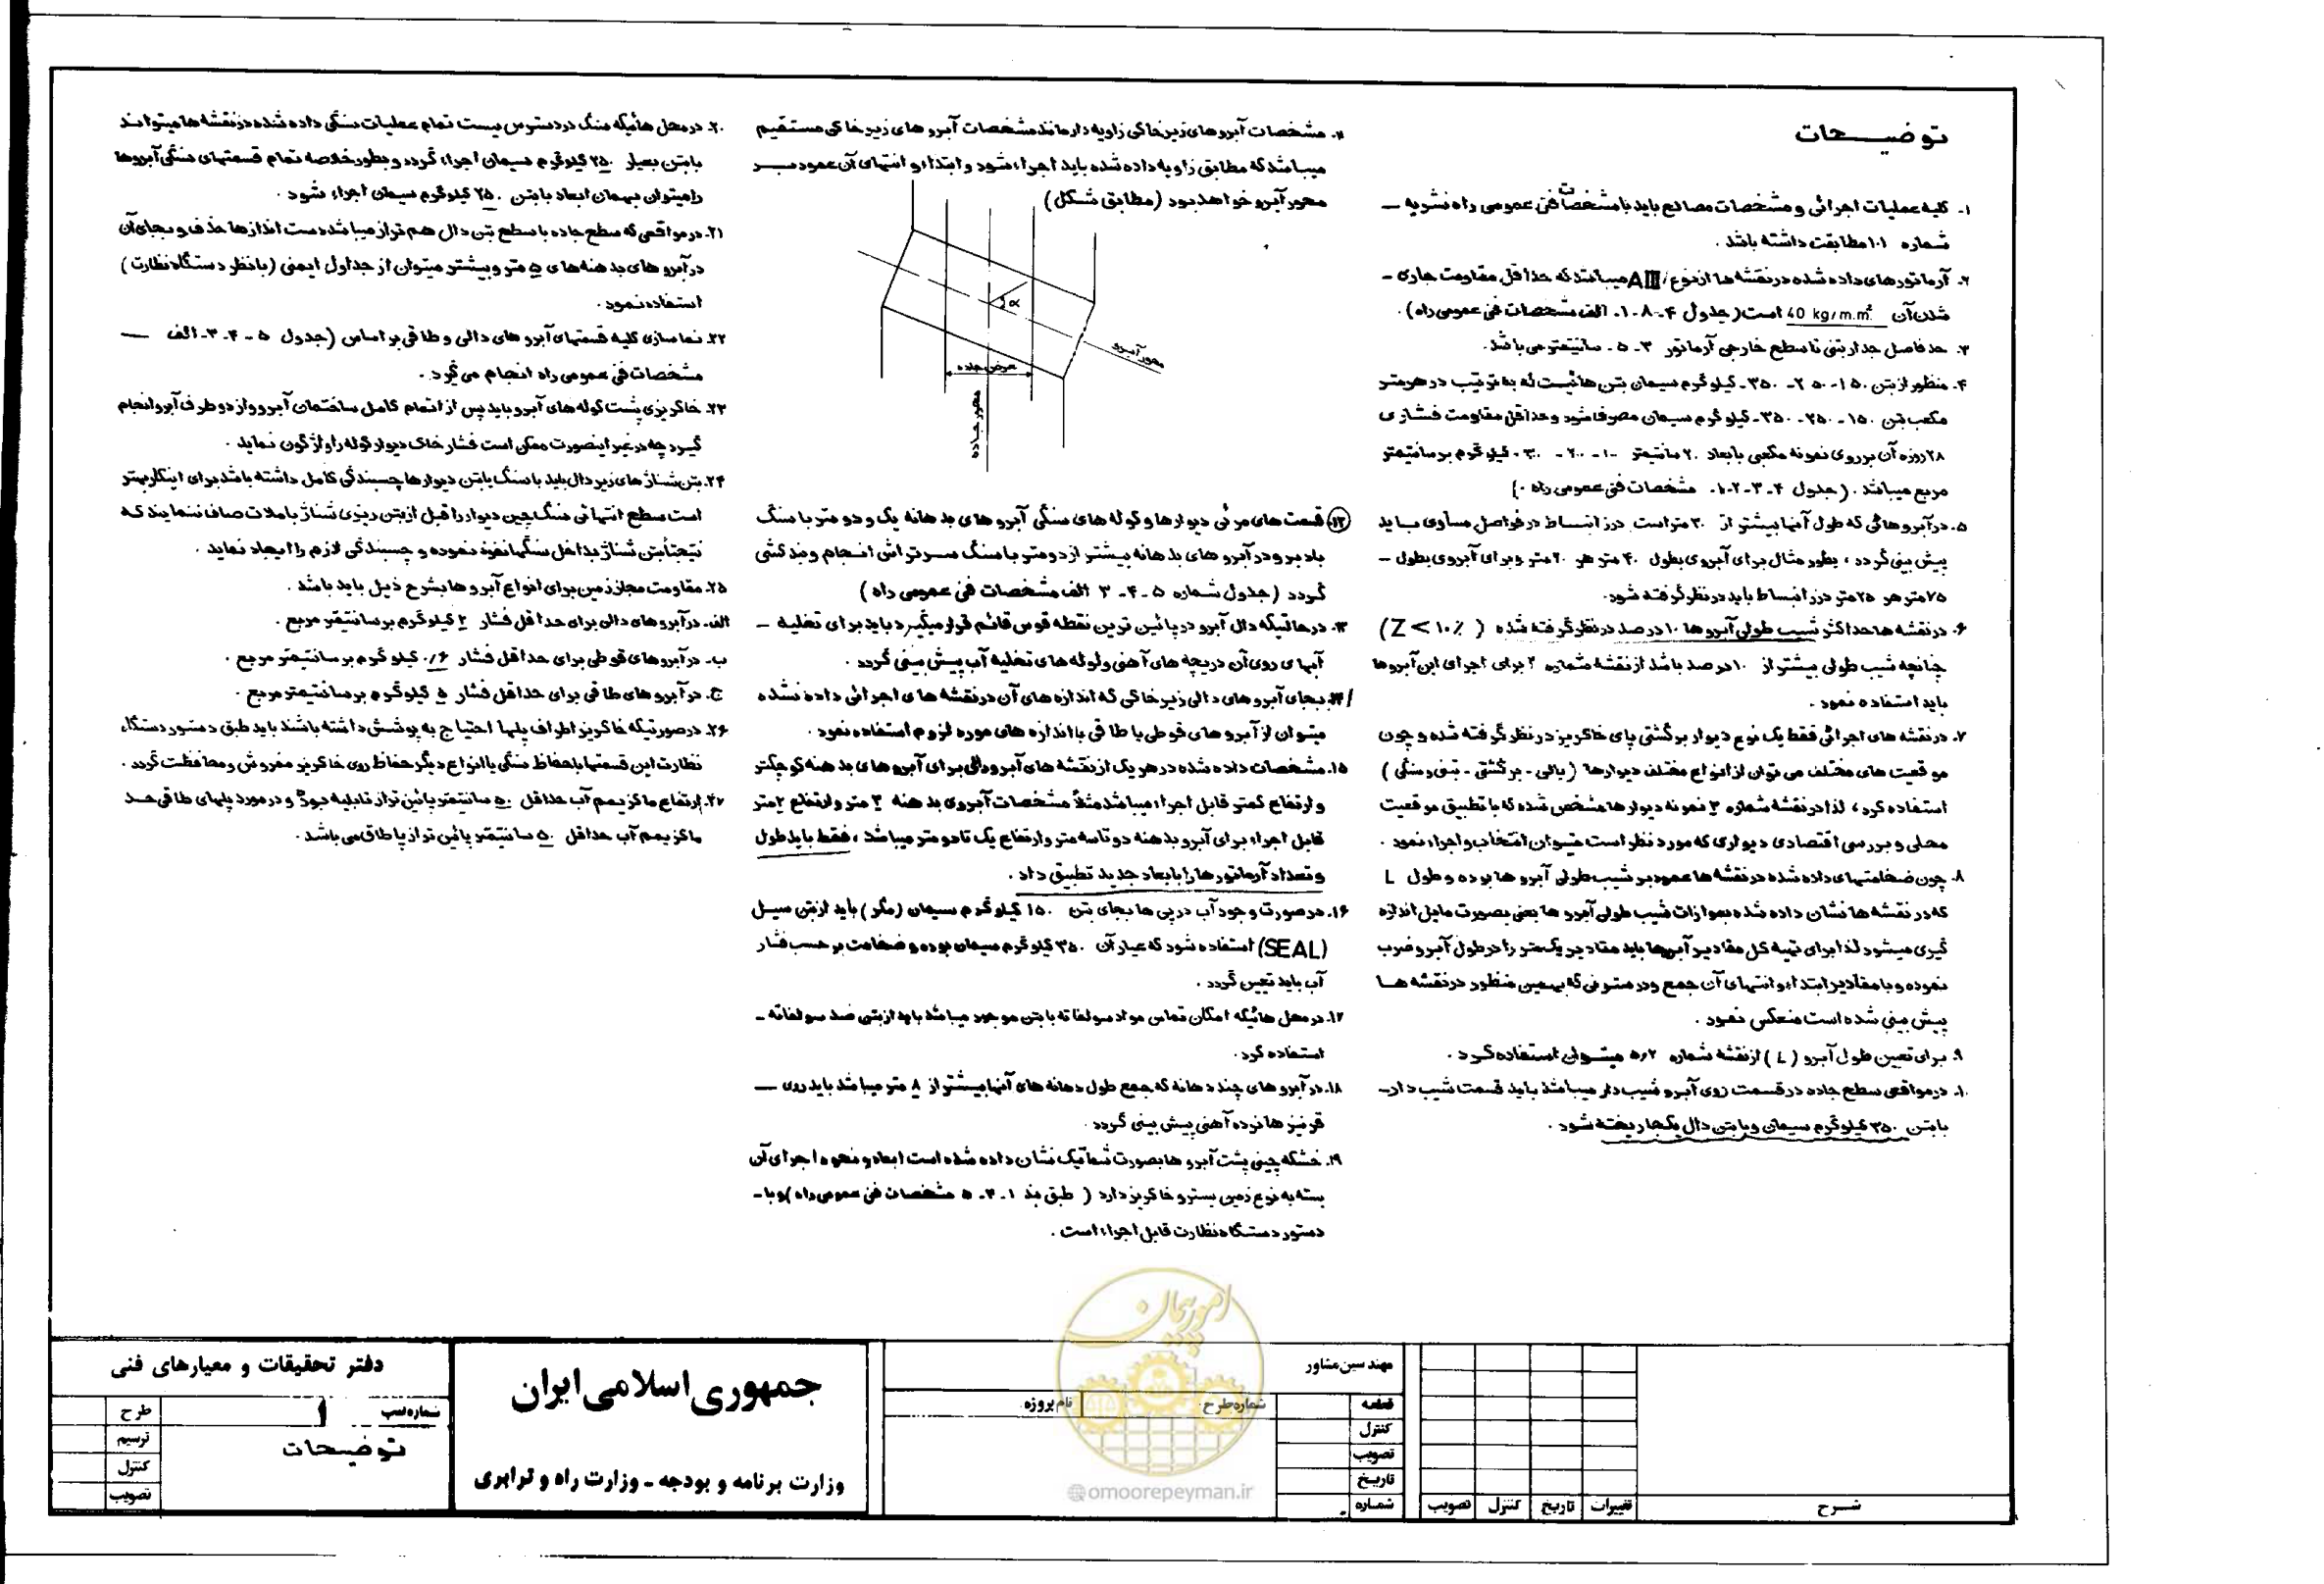 توضیـــحات
۱- کلیه عملیات اجرائی و مشخصات مصالح باید با مشخصات فنی عمومی راه نشریه –
شماره ۱۰۱ مطابقت داشته باشد .
۲- آرماتورهای داده شده در نقشه ها از نوع AIII میباشد که حداقل مقاومت جاری –
شدن آن 40 kg/m.m² است (جدول ۴-۸-۱- الف مشخصات فنی عمومی راه) .
۳- حد فاصل جدار بتنی تا سطح خارجی آرماتور ۳-۵- سانتیمتر می باشد.
۴- منظور از بتن ۱۵۰-۲۵۰-۳۵۰- کیلو گرم سیمان بتن هائیست که به ترتیب در هر متر
مکعب بتن ۱۵۰-۲۵۰-۳۵۰- کیلو گرم سیمان مصرف میشود و حداقل مقاومت فشاری
۲۸ روزه آن بر روی نمونه مکعبی بابعاد ۲۰ سانتیمتر ۱۰۰-۲۰۰-۳۰۰ کیلو گرم بر سانتیمتر
مربع میباشد . (جدول ۴-۳-۲-۱- مشخصات فنی عمومی راه .)
۵- در آبروهائی که طول آنها بیشتر از ۳۰ متر است درز انبساط در فواصل مساوی بـاید
پیش بینی گردد ، بطور مثال برای آبروی بطول ۴۰ متر هر ۲۰ متر و برای آبروی بطول –
۷۵ متر هر ۲۵ متر درز انبساط باید در نظر گرفته شود.
۶- در نقشه ها حداکثر شیب طولی آبروها ۱۰ درصد در نظر گرفته شده (Z < ۱۰٪)
چنانچه شیب طولی بیشتر از ۱۰ درصد باشد از نقشه شماره ۲ برای اجرای این آبروها
باید استفاده نمود .
۷- در نقشه های اجرائی فقط یک نوع دیوار برگشتی پای خاکریز در نظر گرفته شده و چون
موقعیت های مختلف می توان از انواع مختلف دیوارها (بالی - برگشتی - بتنی و سنگی)
استفاده کرد ، لذا در نقشه شماره ۳ نمونه دیوارها مشخص شده که با تطبیق موقعیت
محلی و بررسی اقتصادی دیواری که مورد نظر است میتوان انتخاب و اجراء نمود .
۸- چون ضخامتهای داده شده در نقشه ها عمود بر شیب طولی آبروها بوده و طول L
که در نقشه ها نشان داده شده بموازات شیب طولی آبروها یعنی بصورت مایل اندازه
گیری میشود لذا برای تهیه کل مقادیر آبروها باید مقادیر یک متر را در طول آبرو ضرب
نموده و با مقادیر ابتداء و انتهای آن جمع و در متنی که بهمین منظور در نقشه هـا
پیش بینی شده است منعکس نمود .
۹- برای تعیین طول آبرو (L) از نقشه شماره ۵٫۲ میتـوان استفاده کـرد .
۱۰- در مواقعی سطح جاده در قسمت روی آبرو شیب دار میباشد باید قسمت شیب دار–
با بتن ۳۵۰ کیلو گرم سیمان و با بتن دال یکجا ریخته شود .
۱۱- مشخصات آبروهای زیرخاکی زاویه دار مانند مشخصات آبروهای زیرخاکی مستقیم
میباشد که مطابق زاویه داده شده باید اجراء شود و ابتداء و انتهای آن عمود بــر
محور آبرو خواهد بود (مطابق شکل)
α
محور آبرو
عرض جاده
محور جاده
۱۲- قسمت های مرئی دیوارها و کوله های سنگی آبروهای بدهانه یک و دو متر با سنگ
بادبر و در آبروهای بدهانه بیشتر از دو متر با سنگ سرتراش انجام و بندکشی
گردد (جدول شماره ۵-۴-۳ الف مشخصات فنی عمومی راه)
۱۳- در حالتیکه دال آبرو در پائین ترین نقطه قوس قائم قرار میگیرد باید برای تخلیه –
آبهای روی آن دریچه های آهنی و لوله های تخلیه آب پیش بینی گردد .
۱۴- بجای آبروهای دالی زیرخاکی که اندازه های آن در نقشه های اجرائی داده نشده
میتوان از آبروهای قوطی یا طاقی با اندازه های مورد لزوم استفاده نمود .
۱۵- مشخصات داده شده در هر یک از نقشه های آبرو دالی برای آبروهای بدهنه کوچکتر
و ارتفاع کمتر قابل اجراء میباشد مثلاً مشخصات آبروی بدهنه ۳ متر و ارتفاع ۲ متر
قابل اجراء برای آبرو بدهنه دو تا سه متر و ارتفاع یک تا دو متر میباشد ، فقط باید طول
و تعداد آرماتورها را با ابعاد جدید تطبیق داد .
۱۶- در صورت وجود آب در پی ها بجای بتن ۱۵۰ کیلو گرم سیمان (مگر) باید از بتن سیـل
(SEAL) استفاده شود که عیار آن ۳۵۰ کیلو گرم سیمان بوده و ضخامت بر حسب فشار
آب باید تعیین گردد .
۱۷- در محل هائیکه امکان تماس مواد سولفاته با بتن موجود میباشد باید از بتن ضد سولفاته –
استفاده کرد.
۱۸- در آبروهای چند دهانه که جمع طول دهانه های آنها بیشتر از ۸ متر میباشد باید روی —
قرنیزها نرده آهنی پیش بینی گردد .
۱۹- خشکه چینی پشت آبروها بصورت شماتیک نشان داده شده است ابعاد و نحوه اجرای آن
بسته به نوع زمین بستر و خاکریز دارد (طبق بند ۱-۴-۵ مشخصات فنی عمومی راه) و با–
دستور دستگاه نظارت قابل اجراء است .
۲۰- در محل هائیکه سنگ در دسترس نیست تمام عملیات سنگی داده شده در نقشه ها میتوانـد
با بتن بعیار ۲۵۰ کیلوگرم سیمان اجراء گردد و بطور خلاصه تمام قسمتهای سنگی آبروها
را میتوان بهمان ابعاد با بتن ۲۵۰ کیلوگرم سیمان اجراء شود .
۲۱- در مواقعی که سطح جاده با سطح بتن دال هم تراز میباشد دست اندازها حذف و بجای آن
در آبروهای بدهنه های ۵ متر و بیشتر میتوان از جداول ایمنی (با نظر دستگاه نظارت)
استفاده نمود.
۲۲- نماسازی کلیه قسمتهای آبروهای دالی و طاقی بر اساس (جدول ۵-۴-۳-الف —
مشخصات فنی عمومی راه انجام می گیرد .
۲۳- خاکریزی پشت کوله های آبرو باید پس از اتمام کامل ساختمان آبرو و از دو طرف آبرو انجام
گیرد چه در غیر اینصورت ممکن است فشار خاک دیوار کوله را واژگون نماید .
۲۴- بتن شناژهای زیر دال باید با سنگ یا بتن دیوارها چسبندگی کامل داشته باشد برای اینکار بهتر
است سطح انتهائی سنگ چین دیوار را قبل از بتن ریزی شناژ با ملات صاف ننمایند کـه
نتیجتاً بتن شناژ بداخل سنگها نفوذ نموده و چسبندگی لازم را ایجاد نماید .
۲۵- مقاومت مجاز زمین برای انواع آبروها بشرح ذیل باید باشد .
الف- در آبروهای دالی برای حداقل فشار ۲ کیلو گرم بر سانتیمتر مربع .
ب- در آبروهای قوطی برای حداقل فشار ۰/۶ کیلو گرم بر سانتیمتر مربع .
ج- در آبروهای طاقی برای حداقل فشار ۵ کیلوگرم بر سانتیمتر مربع .
۲۶- در صورتیکه خاکریز اطراف پلها احتیاج به پوشش داشته باشند باید طبق دستور دستگاه
نظارت این قسمتها با حفاظ سنگی یا انواع دیگر حفاظ روی خاکریز مفروش و محافظت گردد .
۲۷- ارتفاع ماکزیمم آب حداقل ۵۰ سانتیمتر پائین تراز تابلیه بوده و در مورد پلهای طاقی حـد
ماکزیمم آب حداقل ۵۰ سانتیمتر پائین تر از پا طاق می باشد .
امور پیمان
@omoorepeyman.ir
شـــرح
تغییرات
تاریخ
کنترل
تصویب
مهندسین مشاور
قطعه
کنترل
تصویب
تاریـخ
شمـاره
شماره طرح
نام پروژه
جمهوری اسلامی ایران
وزارت برنامه و بودجه ـ وزارت راه و ترابری
دفتر تحقیقات و معیارهای فنی
شماره تیپ ۱
توضیـحات
طرح
ترسیم
کنترل
تصویب